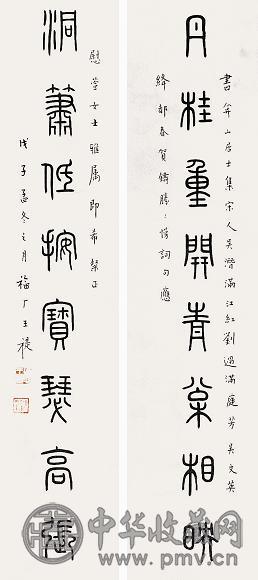 丹桂重開青案相映
書弁山居士集宋人吳潛滿江紅劉過滿庭芳吳文英
絳都春賀鑄勝勝慢詞句應
慰堂女士雅属即希粲正
洞簫低按寶瑟高張
戊子孟冬之月 福厂王禔
中华收藏网
www.pmv.cn